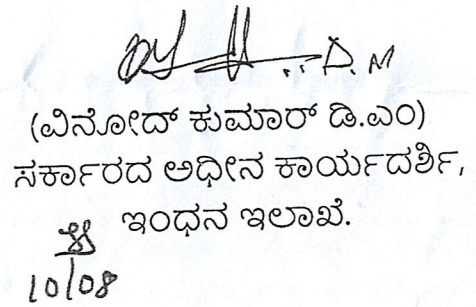 D. M
(ವಿನೋದ್ ಕುಮಾರ್ ಡಿ.ಎಂ)
ಸರ್ಕಾರದ ಅಧೀನ ಕಾರ್ಯದರ್ಶಿ,
ಇಂಧನ ಇಲಾಖೆ.
10/08